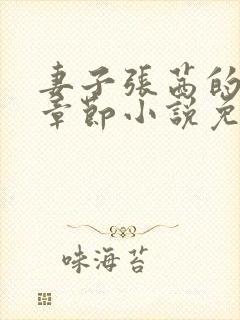 妻子張茜的
章節小說免
味海苔